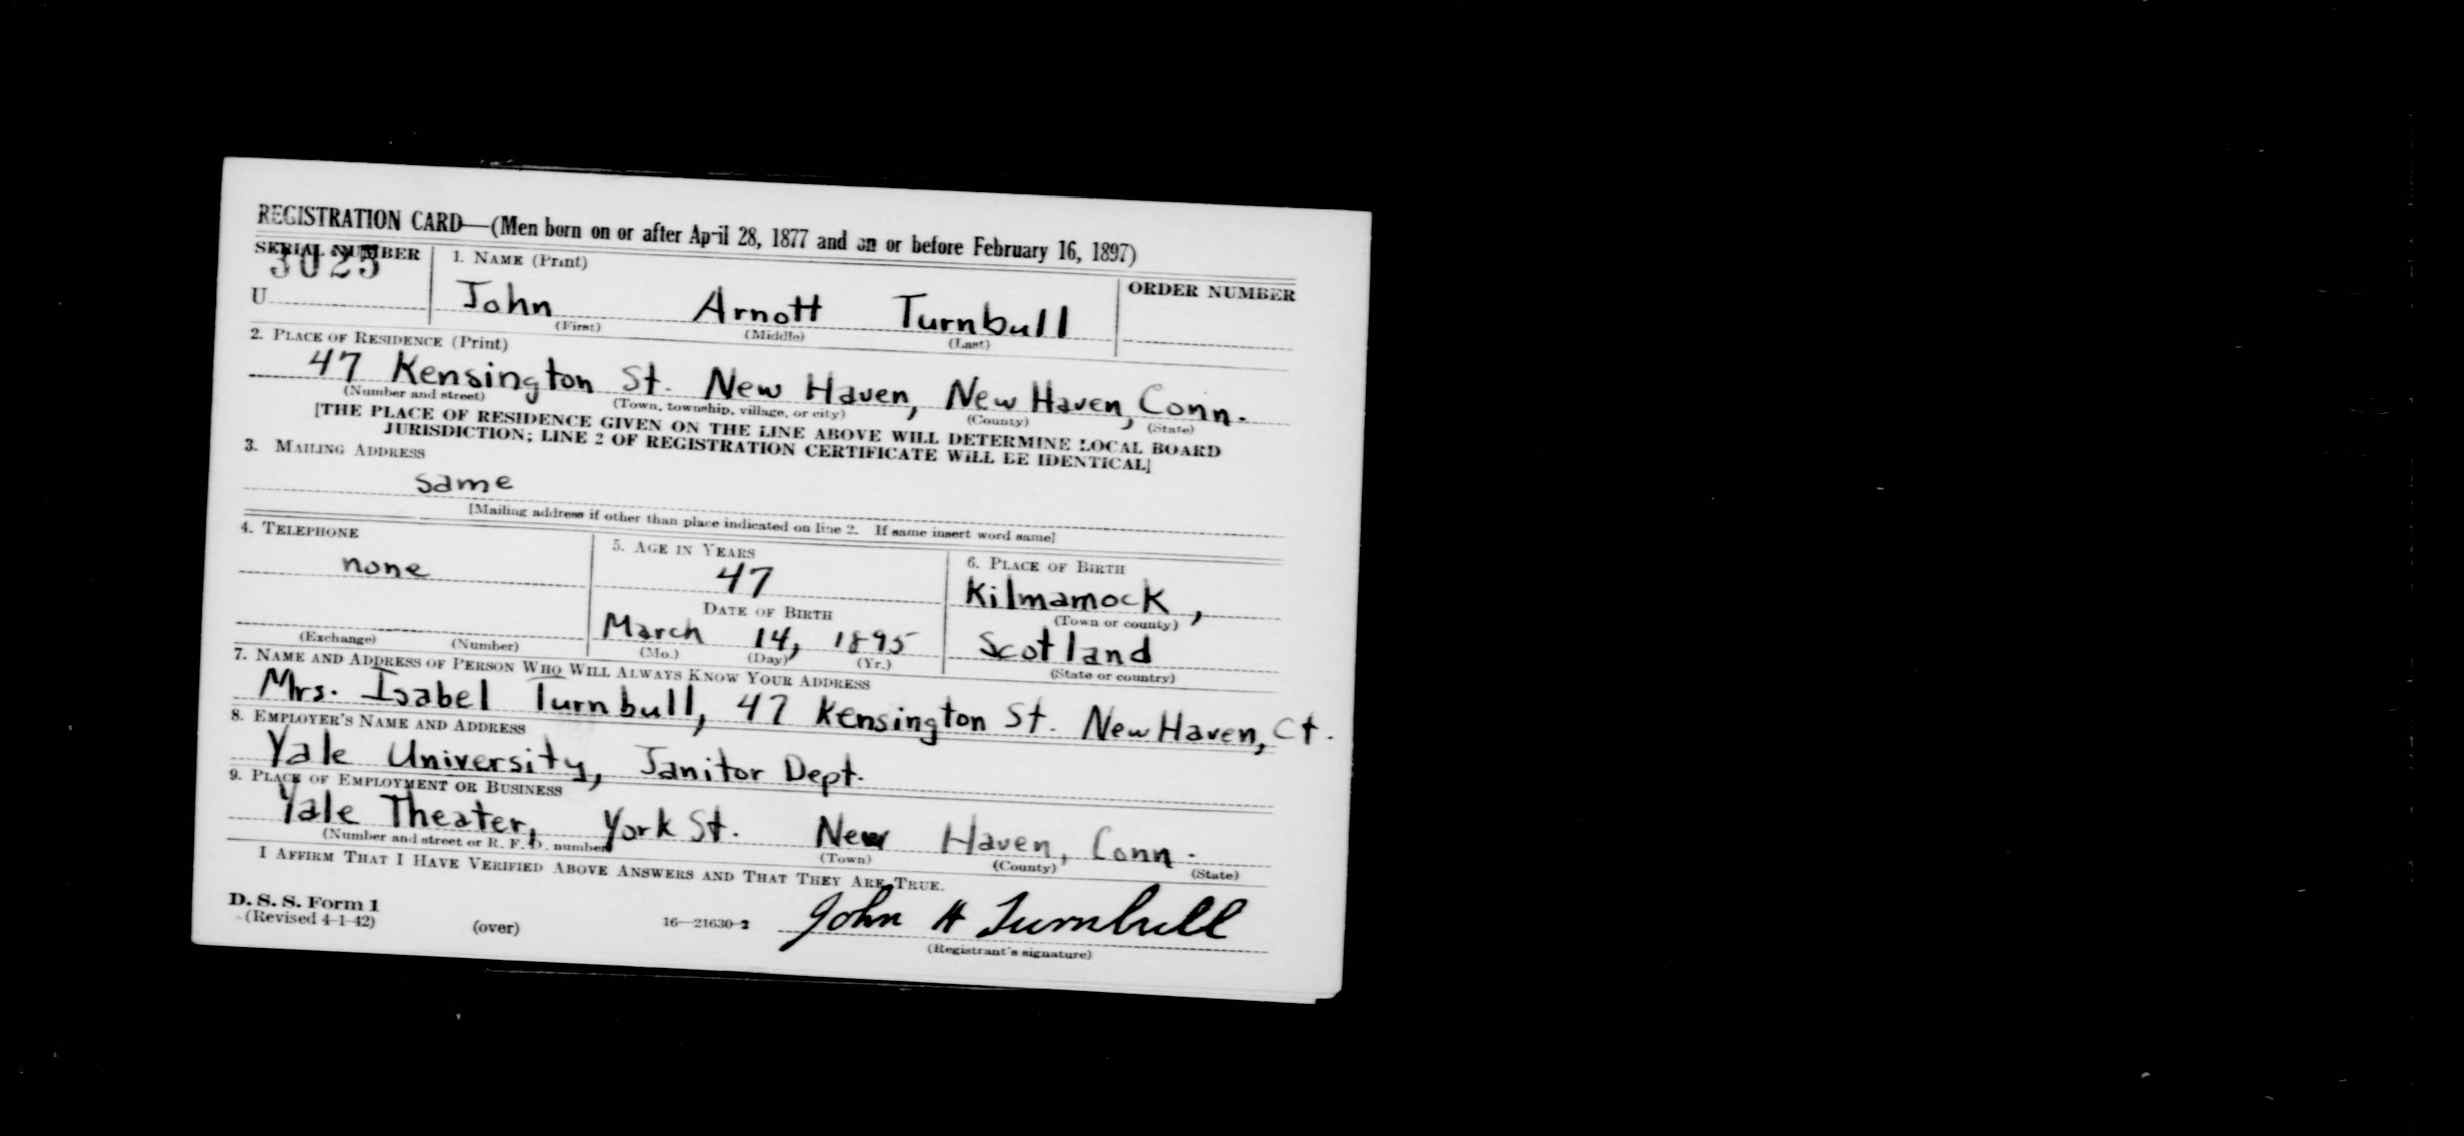 REGISTRATION CARD—(Men born on or after April 28, 1877 and on or before February 16, 1897)
SERIAL NUMBER
3025
U
1. NAME (Print)
John Arnott Turnbull
(First) (Middle) (Last)
ORDER NUMBER
2. PLACE OF RESIDENCE (Print)
47 Kensington St. New Haven, New Haven, Conn.
(Number and street) (Town, township, village, or city) (County) (State)
[THE PLACE OF RESIDENCE GIVEN ON THE LINE ABOVE WILL DETERMINE LOCAL BOARD
JURISDICTION; LINE 2 OF REGISTRATION CERTIFICATE WILL BE IDENTICAL]
3. MAILING ADDRESS
same
[Mailing address if other than place indicated on line 2. If same insert word same]
4. TELEPHONE
none
(Exchange) (Number)
5. AGE IN YEARS
47
DATE OF BIRTH
March 14, 1895
(Mo.) (Day) (Yr.)
6. PLACE OF BIRTH
Kilmamock,
(Town or county)
Scotland
(State or country)
7. NAME AND ADDRESS OF PERSON WHO WILL ALWAYS KNOW YOUR ADDRESS
Mrs. Isabel Turnbull, 47 Kensington St. New Haven, Ct.
8. EMPLOYER'S NAME AND ADDRESS
Yale University, Janitor Dept.
9. PLACE OF EMPLOYMENT OR BUSINESS
Yale Theater, York St. New Haven, Conn.
(Number and street or R. F. D. number) (Town) (County) (State)
I AFFIRM THAT I HAVE VERIFIED ABOVE ANSWERS AND THAT THEY ARE TRUE.
D. S. S. Form 1
(Revised 4-1-42) (over) 16—21630-2
John A Turnbull
(Registrant's signature)